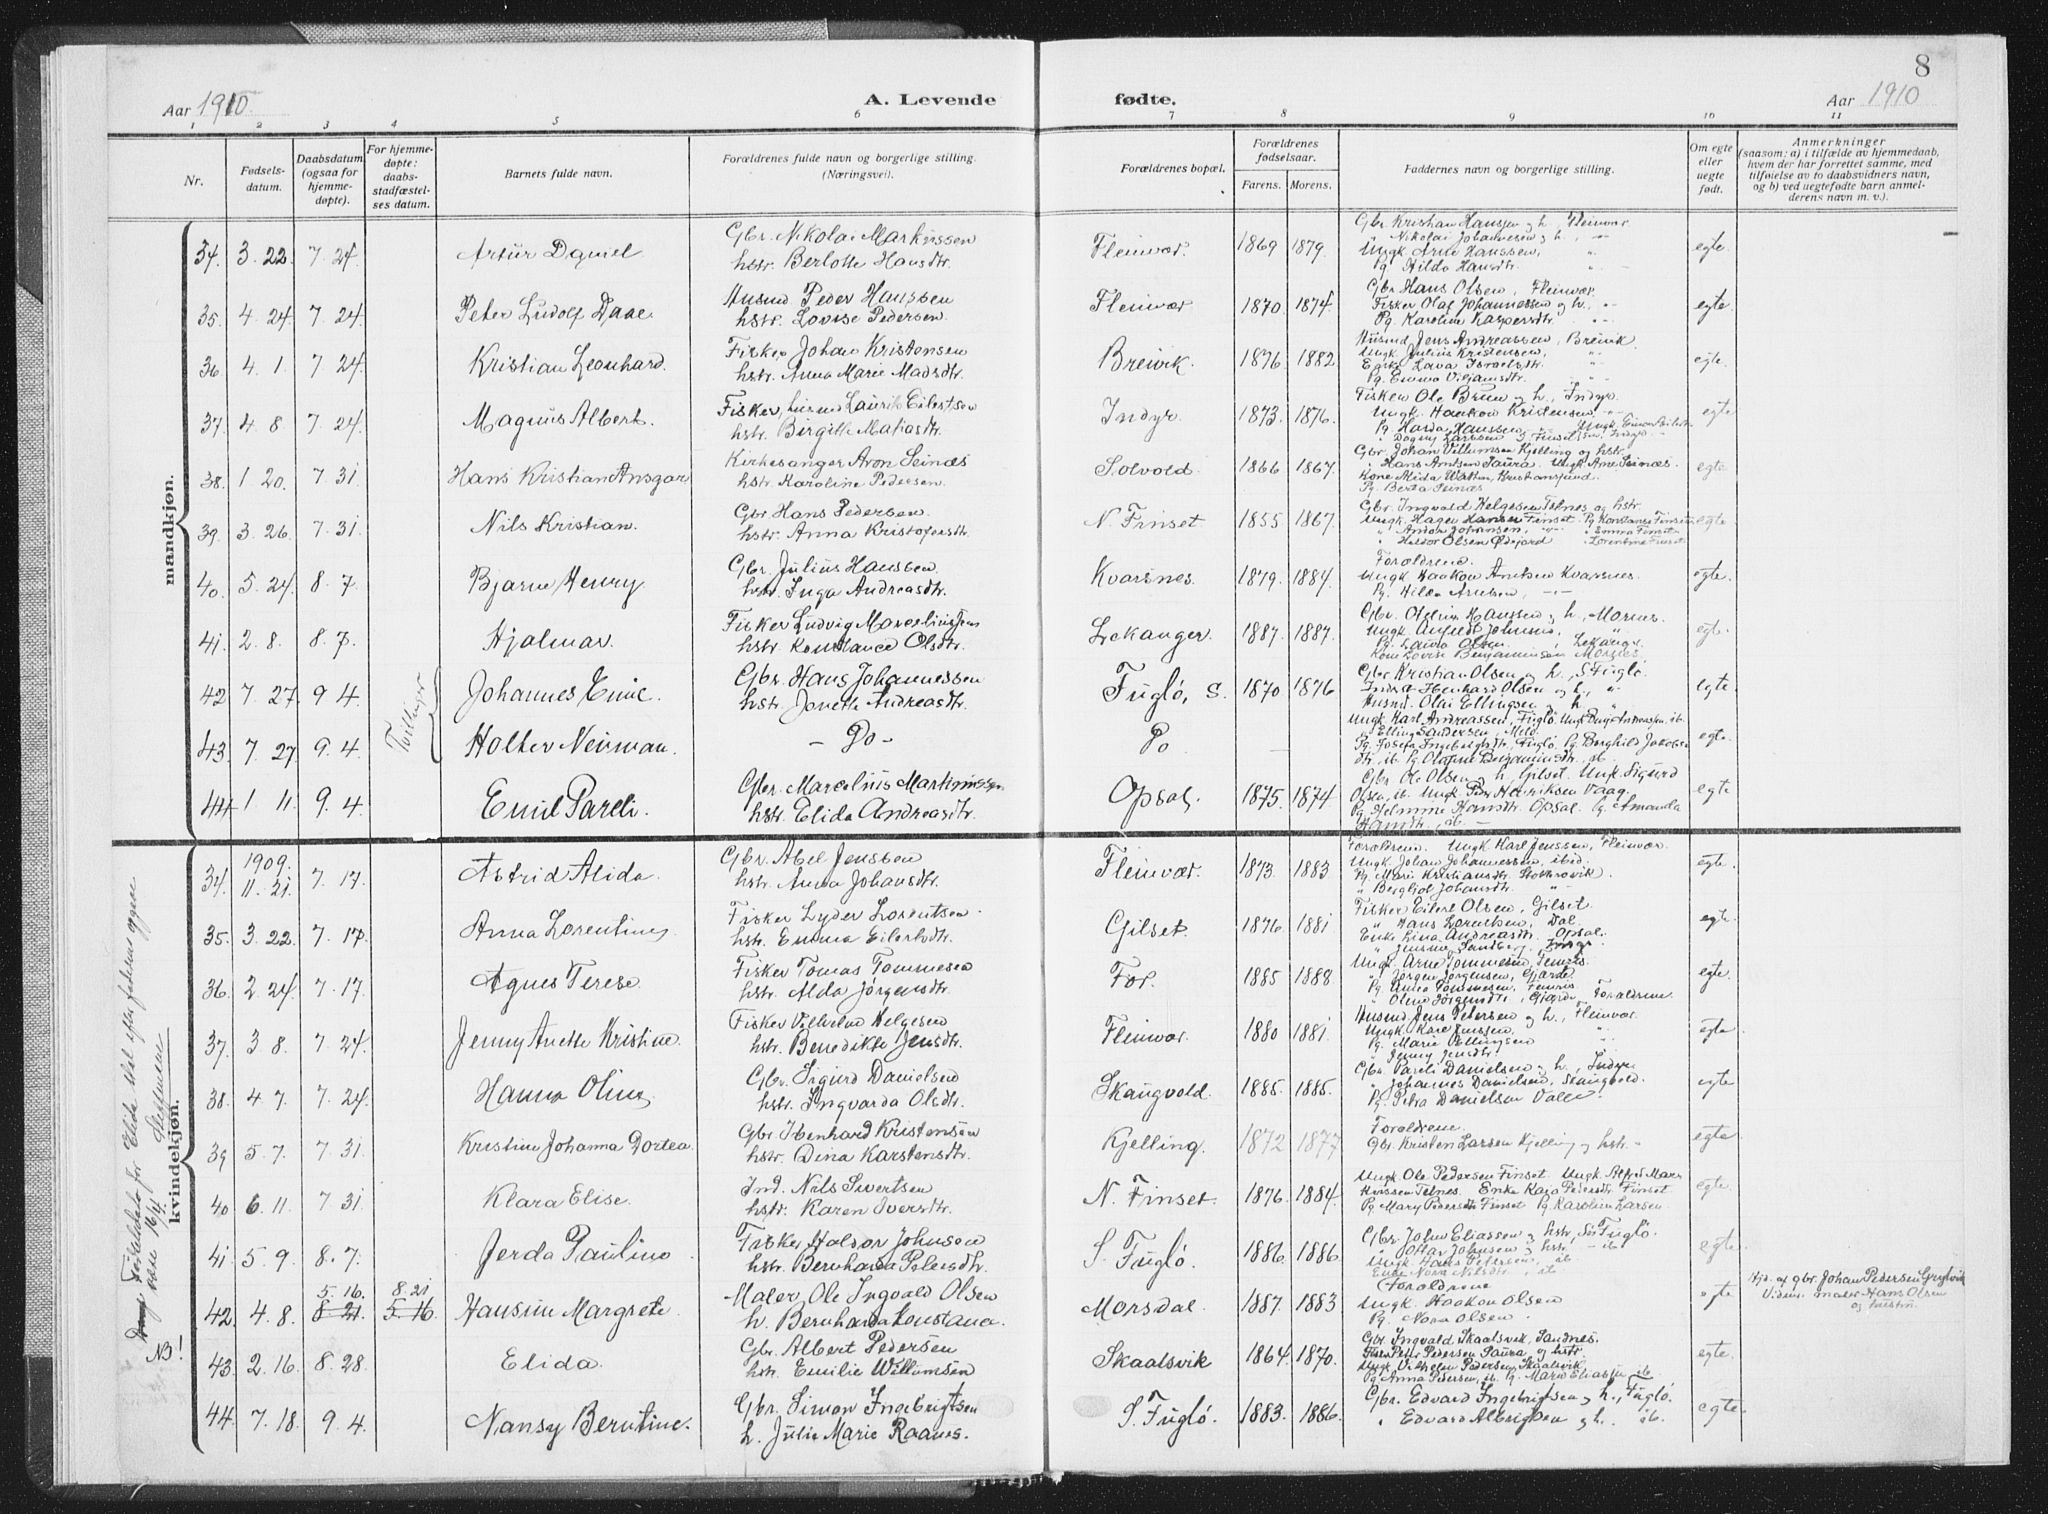 8
Aar 1910.
A. Levende
fødte.
Aar 1910
1 2 3 4 5 6 7 8 9 10 11
Nr.
Fødsels-
datum.
Daabsdatum
(ogsaa for
hjemme-
døpte).
For hjemme-
døpte:
daabs-
stadfæstel-
ses datum.
Barnets fulde navn.
Forældrenes fulde navn og borgerlige stilling.
(Næringsvei).
Forældrenes bopæl.
Forældrenes
fødselsaar.
Farens. Morens.
Faddernes navn og borgerlige stilling.
Om egte
eller
uegte
født.
Anmerkninger
(saasom: a) i tilfælde av hjemmedaab,
hvem der har forrettet samme, med
tilføielse av to daabsvidners navn,
og b) ved uegtefødte barn anmel-
derens navn m. v.).
mandkjøn.
34. 3. 22. 7. 24. Artur Daniel
Gbr. Nikolai Markussen
hstr. Berlotte Hansdtr.
Fleinvær. 1869 1879.
Gbr Kristian Hansen og h. Fleinvær.
" Nikolai Johannesen og h., -"-
Ungk Arne Hanssen, "
Pg. Hilda Hansdtr. "
egte
35. 4. 24. 7. 24. Peter Ludolf Daae.
Husmd Peder Hanssen
hstr. Lovise Pedersen.
Fleinvær 1870 1874.
Gbr Hans Olsen, Fleinvær.
Fisker Olaf Johannessen og h. "
Pg. Karoline Kaspersdtr. "
egte.
36 4. 1. 7. 24. Kristian Leonhard.
Fisker Johan Kristensen
hstr. Anna Marie Madsdtr.
Breivik. 1876 1882
Husmd Jens Andreassen, Breivik.
Ungk Julius Kristensen, "
Enke Lava Israelsdtr. "
Pg. Emma Viljamsdtr. "
egte.
37. 4. 8 7. 24. Magnus Albert.
Fisker, husmd Laurits Eilertsen
hstr. Bergitte Matiasdtr.
Indyr. 1873. 1876.
Fisker Ole Bruun og h., Indyr.
Ungk. Haakon Kristensen, -"-
Pg. Harda Hanssen
egte
38. 1. 20. 7. 31. Hans Kristian Ansgar
Kirkesanger Aron Seinæs
hstr. Karoline Pedersen.
Solvold. 1866 1867.
Gbr. Johan Villumsen Kjelling og hstr.
" Hans Antsen Saura. Ungk Arne Seinæs.
Kone Alida Watten, Kristiansund.
Pg. Berta Seinæs
egte
39. 3. 26. 7. 31. Nils Kristian.
Gbr Hans Pedersen.
hstr. Anna Kristofersdtr.
N. Finset 1855 1867.
Gbr. Ingvald Helgesen Telnes og hstr.
Ungk. Hagen Hansen Finset. Pg Konstanse Finset
" Anton Johansen, "
" Heldor Olsen Ødejord
egte
40. 5. 24. 8. 7. Bjarne Henry
Gbr. Julius Hanssen
hstr. Inga Andreasdtr.
Kvarsnes. 1879. 1884.
Forældrene.
Ungk Haakon Arntsen Kvarsnes.
Pg. Hilda Arntsen, -"-
egte.
41. 2. 8. 8. 7. Hjalmar.
Fisker Ludvig Marseliussen
hstr Konstance Olsdtr.
Lekanger. 1887. 1887.
Gbr. Oldrin Hanssen og h., Mornes.
Ungk Anfeldt Johnsen, "
Pg. Laura Olsen, Lekange.
Kone Lovise Benjaminsen Mornes
egte.
Tvillinger
42 7. 27. 9. 4. Johannes Emil.
Gbr. Hans Johannessen
hstr. Janette Andreasdtr.
Fuglø, S. 1870 1876
Gbr Kristian Olsen og h., S. Fuglø.
Indrst Ibenhard Olsen og h., "
Husmd. Olai Ellingsen og h. "
egte.
43. 7. 27. 9. 4. Holter Neuman.
- Do -
Do —
Ungk Karl Andreassen, Fuglø.
" Elling Sandersen, Mela.
Pg. Josefa Ingebrigtsdtr., Fuglø. Pg. Berghild Jakobs-
dtr., ib. Pg. Olafine Benjaminsdtr., ib.
egte.
44. 1. 11. 9. 4. Emil Pareli.
Gbr. Marcelius Markussen
hstr. Elida Andreasdtr.
Opsal. 1875. 1874
Gbr. Ole Olsen og h. Gilset. Ungk. Sigurd
Olsen, ib. Ungk. Peder Henriksen Vaag.
Pg Helmine Hansdtr. Opsal. Pg. Amanda
Hansdtr., ib. —
egte
kvindekjøn.
34. 1909. 11. 21. 7. 17. Astrid Alida.
Gbr. Abel Jenssen
hstr. Anna Johansdtr.
Fleinvær. 1873. 1883
Forældrene. Ungk Karl Jenssen, Fleinvær.
Ungk. Johan Johannessen, ibid.
Pg. Marie Kristiansdtr.
" Bergliot Johansdtr. "
egte.
35. 3. 22. 7. 17. Anna Lorentine
Fisker Lyder Lorentsen.
hstr. Emma Eilertsdtr.
Gilset. 1876. 1881
Fisker Eilert Olsen, Gilset.
" Hans Lorentsen, Dal.
Enke Lina Andreasdtr. Opsal.
" Jensine Sandberg, Indyr.
egte.
36. 2. 24. 7. 17. Agnes Terese.
Fisker Tomas Tommesen
hstr. Alda Jørgensdtr.
For. 1885 1888
Ungk. Arne Tommesen, Femris.
" Jørgen Jørgensen, Gjærde.
Pg. Anna Tommesen, Femris
" Oline Jørgensdtr., Gjærde, Forældrene.
egte.
37. 3 8. 7. 24. Jenny Anette Kristine.
Fisker Vilhelm Helgesen
hstr. Benedikte Jensdtr.
Fleinvær. 1880 1881
Husmd Jens Petersen og h., Fleinvær
Ungk. Kare Jenssen, "
Pg. Marie Ellingsen "
" Jenny Jensdtr. "
egte
38. 4. 7. 7. 24. Hanna Oline
Gbr. Sigurd Danielsen
hstr. Ingvarda Olsdtr.
Skaugvold. 1885. 1885.
Gbr. Pareli Danielsen og h., Indyr
" Johannes Danielsen, Skaugvold.
Pg. Petra Danielsen Valle.
egte
39 5. 7. 7. 31. Kristine Johanna Dortea.
Gbr Ibenhard Kristensen
hstr. Dina Karstensdtr.
Kjelling. 1872 1877
Forældrene.
Gbr. Kristen Larsen Kjelling og hstr. "
egte
40 6. 11. 7 31. Klara Elise.
Ind. Nils Sivertsen
hstr. Karen Iversdtr.
N. Finset. 1876. 1884.
Ungk Ole Pedersen Finset. Ungk. Alfred Mari-
niussen Telnes. Enke Kaja Pedersdtr Finset
Pg Mary Pedersdtr Finset Pg. Karoline Larsen.
egte.
41 5. 9. 8. 7. Jerda Pauline
Fisker Haldor Johnsen
hstr. Bernharda Petersdtr.
S. Fuglø. 1886. 1886.
Gbr. John Eliassen og hstr, Sø. Fuglø.
" Ottar Johnsen og hstr. - ib
Ungk. Hans Petersen, ib
Enke Nora Nilsdtr., ib
egte.
42. 4. 8. 5. 16. 8. 21 8. 21. 5. 16. Hansine Margrete
Maler, Ole Ingvald Olsen
h. Bernharda Konstance.
Morsdal. 1887. 1883
Forældrene
Ungk. Haakon Olsen
Pg. Nora Olsen.
egte
Hjd. af gbr. Johan Pedersen
Vidner: maler Hans Olsen
og hustru.
43. 2. 16. 8. 28. Elida.
Gbr. Albert Pedersen
hstr. Emilie Willumsen
Skaalsvik 1864. 1870.
Gbr Ingvald Skaalsvik, Sandnes.
Peter Pedersen Saura og hstr.
Ungk Vilhelm Pedersen, Skaalsvik
Pg. Anna Pedersen, ib. Pg. Marie Eliassen ib
egte.
44. 7. 18. 9. 4. Nansy Berntine.
Gbr. Simon Ingebrigtsen
h. Julie Marie Raanes.
S. Fuglø. 1883. 1886.
Gbr. Edvard Ingebrigtsen og h., Fuglø.
" Edvard Albrigtsen og h. ib.
egte.
NB! Forældrene for Elida skal efter faderens opgave
være 16/4. Steffensen